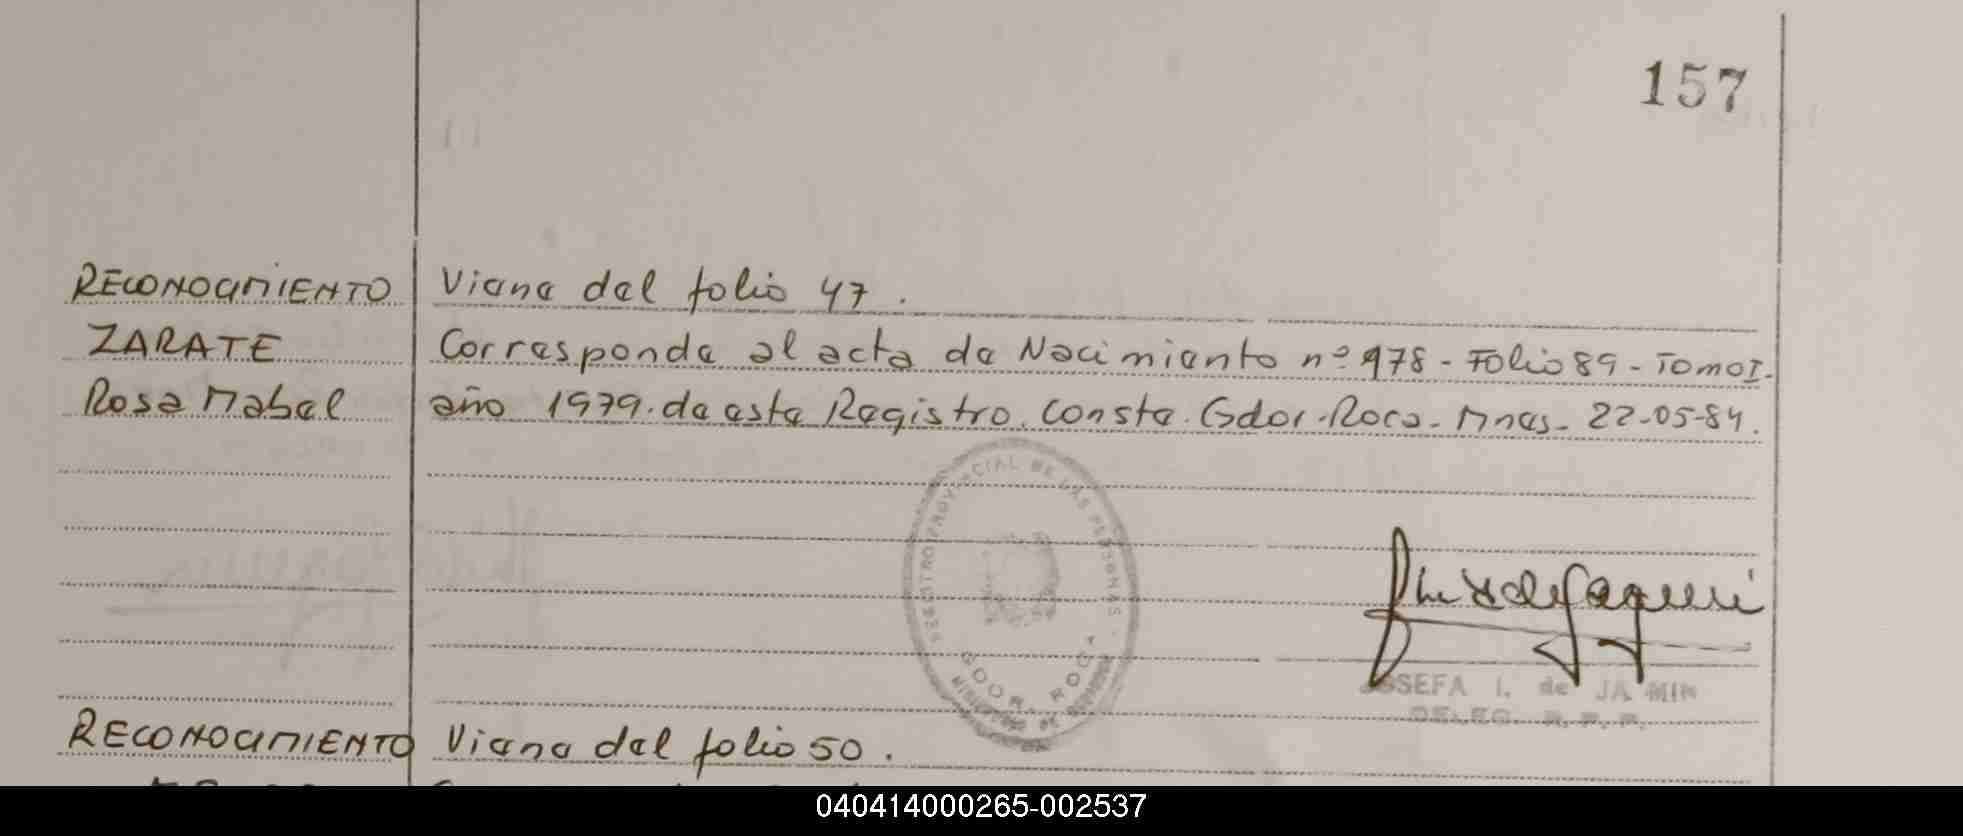 157
RECONOCIMIENTO Viene del folio 47.
ZARATE Corresponde al acta de Nacimiento nº 978 - Folio 89 - Tomo I.
Rosa Mabel año 1979. de este Registro. Conste. Gdor. Roca. Mnes. 22-05-84.
REGISTRO PROVINCIAL DE LAS PERSONAS
GDOR. ROCA
MINISTERIO DE GOBIERNO
JOSEFA I. de JA MIN
DELEG. R. P. P.
RECONOCIMIENTO Viene del folio 50.
040414000265-002537